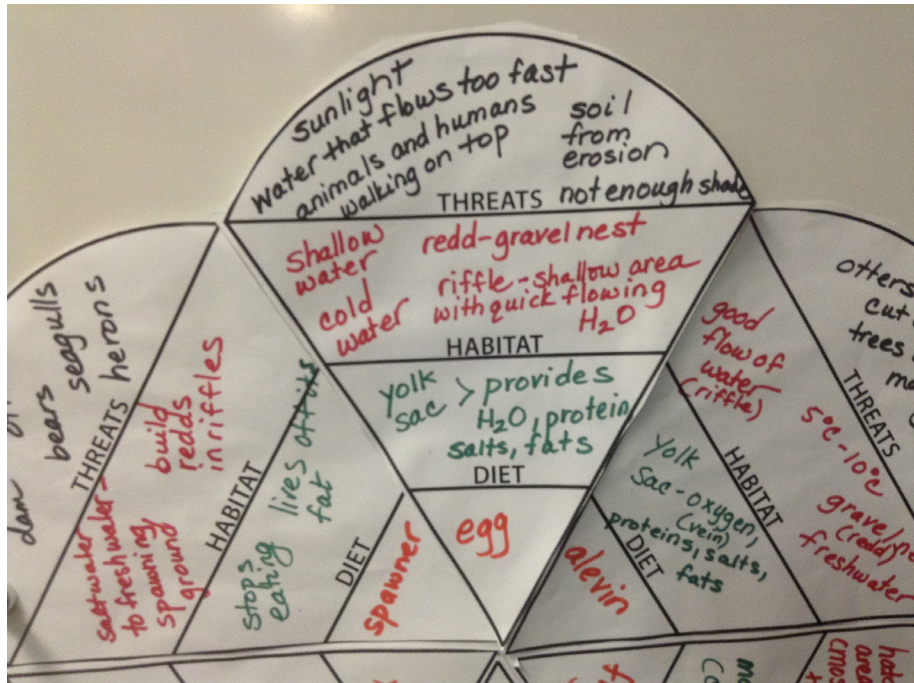 sunlight
water that flows too fast
animals and humans
walking on top
soil
from
erosion
not enough shade
THREATS
shallow
water
cold
water
redd-gravel nest
riffle-shallow area
with quick flowing
H₂O
HABITAT
yolk
sac > provides
H₂O, protein,
salts, fats
DIET
egg
dam
bears
seagulls
herons
THREATS
saltwater-
to freshwater
spawning
ground
build
redds
in riffles
HABITAT
stops
eating
lives off its
fat
DIET
spawner
otters
cut
trees
THREATS
good
flow of
water
(riffle)
5°C-10°C
gravel
(redd)
freshwater
HABITAT
Yolk
sac-oxygen,
(vein)
proteins, salts,
fats
DIET
alevin